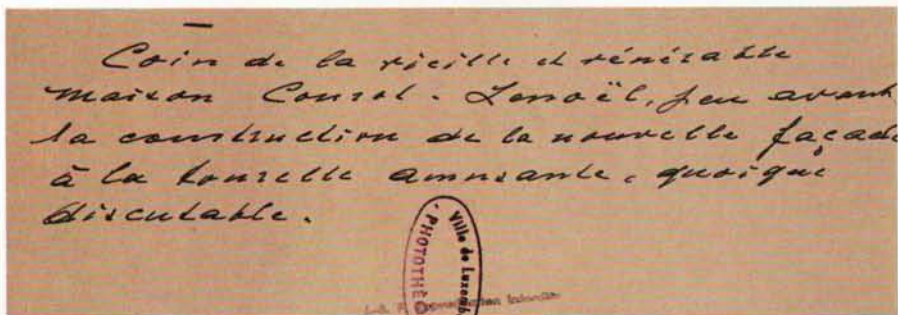 Coin de la vieille et vénérable
maison Conrot-Lenoël, peu avant
la construction de la nouvelle façade
à la tourelle amusante, quoique
discutable.
Ville de Luxemb
PHOTOTHÈ